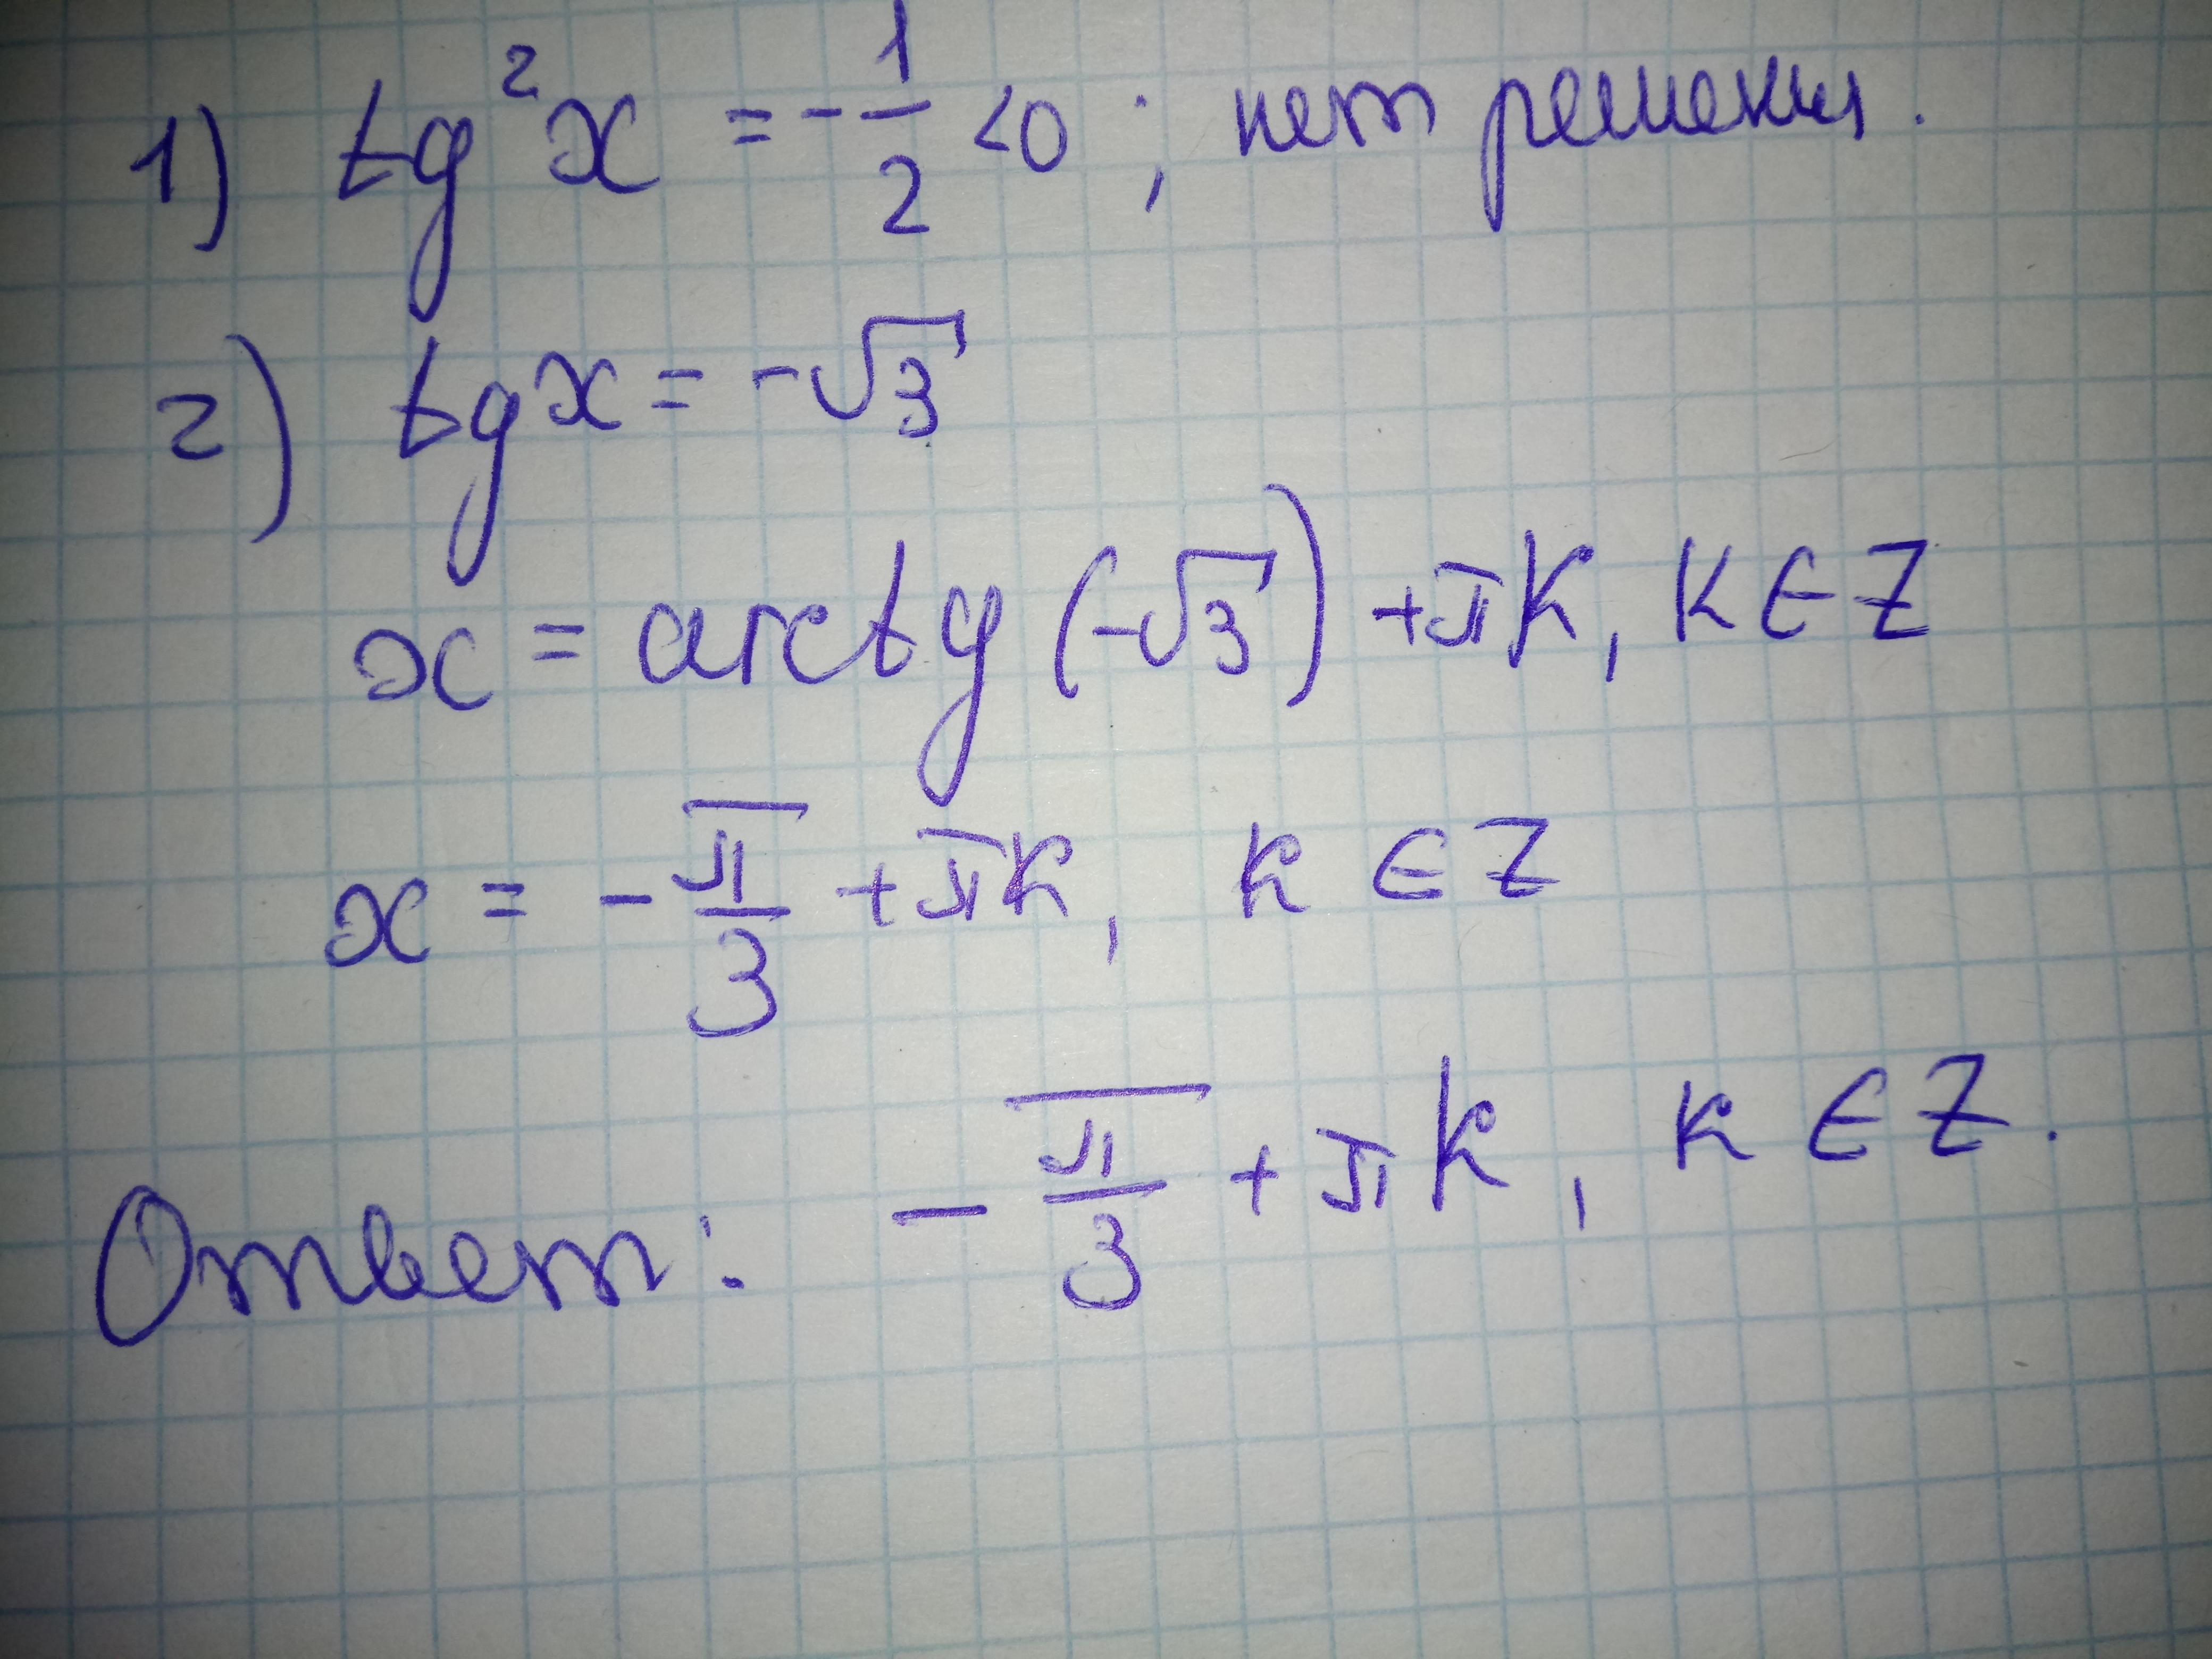 1) tg²x = -1/2 <0 ; нет решения.
2) tgx = -√3
x = arctg(-√3) + πk, k∈Z
x = -π/3 + πk, k∈Z
Ответ: -π/3 + πk, k∈Z.